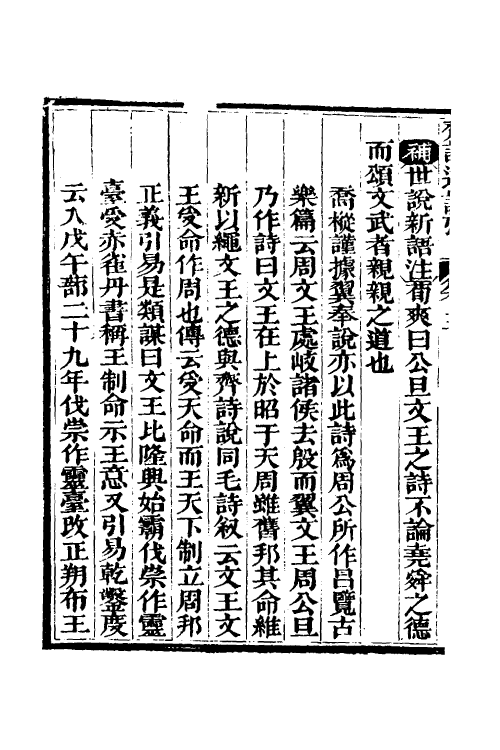 補世說新語注荀爽曰公旦文王之詩不論堯舜之德
而頌文武者親親之道也
喬樅謹據翼奉說亦以此詩為周公所作呂覽古
樂篇云周文王處岐諸侯去殷而翼文王周公旦
乃作詩曰文王在上於昭于天周雖舊邦其命維
新以繩文王之德與齊詩說同毛詩敘云文王文
王受命作周也傳云受天命而王天下制立周邦
正義引易是類謀曰文王比隆興始霸伐崇作靈
臺受赤雀丹書稱王制命示王意又引易乾鑿度
云入戊午部二十九年伐崇作靈臺改正朔布王